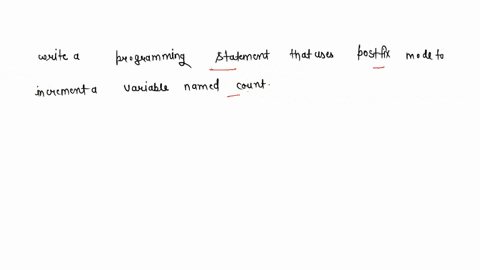 write a programming statement that uses postfix mode to
increment a variable named count.